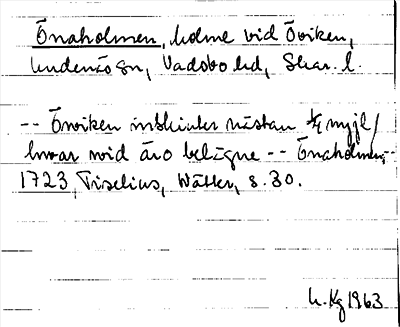 Önaholmen, holme vid Öviken,
Undenäs sn, Vadsbo hd, Skar. l.
-- Öwiken inskiuter nästan 1/4 myjl /
hwar wid äro belägne -- Önaholmen, --
1723, Tiselius, Wätter, s. 30.
1963